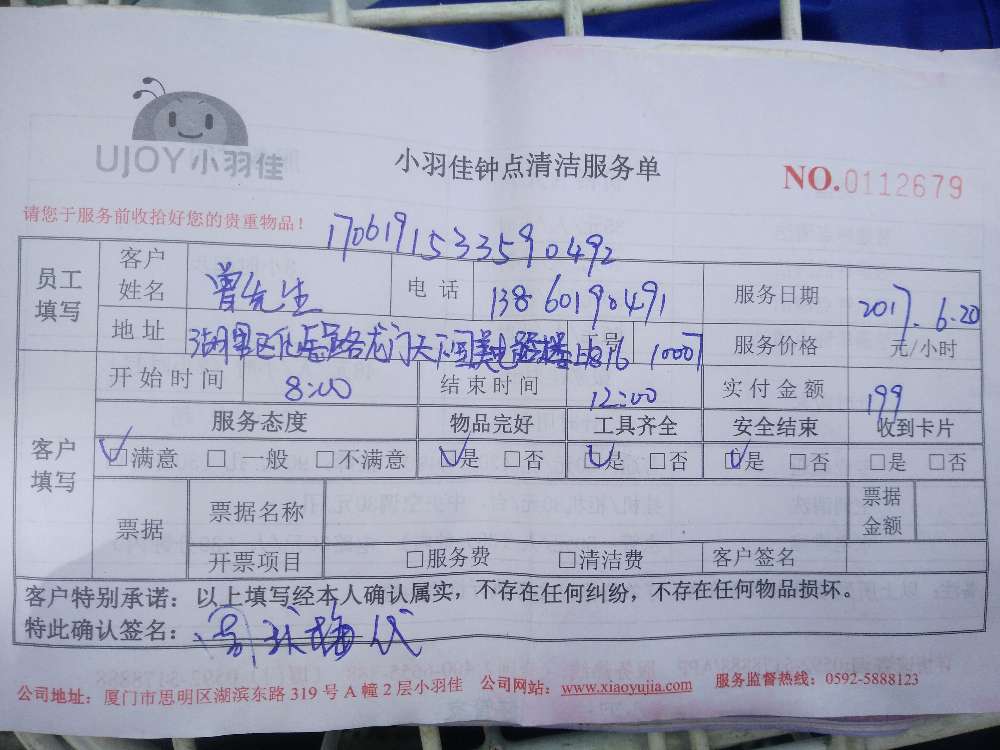 UJOY小羽佳
小羽佳钟点清洁服务单
NO.0112679
请您于服务前收拾好您的贵重物品！
1706191533590492
员工填写 客户姓名 曾先生 电话 13860190491 服务日期 2017.6.20
地址 湖里区仙岳路龙门天下国美电器楼上 1000 服务价格 元/小时
开始时间 8:00 结束时间 12:00 实付金额 199
客户填写 服务态度 物品完好 工具齐全 安全结束 收到卡片
☑满意 □一般 □不满意 ☑是 □否 ☑是 □否 ☑是 □否 □是 □否
票据 票据名称 票据金额
开票项目 □服务费 □清洁费 客户签名
客户特别承诺：以上填写经本人确认属实，不存在任何纠纷，不存在任何物品损坏。
特此确认签名：
公司地址：厦门市思明区湖滨东路 319 号 A 幢 2 层小羽佳 公司网站：www.xiaoyujia.com 服务监督热线：0592-5888123